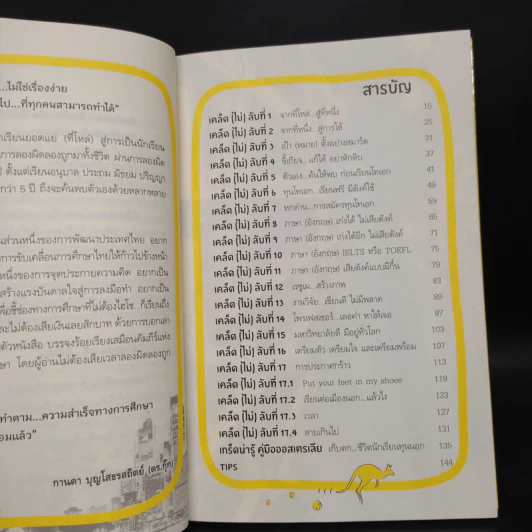 ...ไม่ใช่เรื่องง่าย
ไป...ที่ทุกคนสามารถทำได้"
เรียนยอดแย่ (ที่โหล่) สู่การเป็นนักเรียน
การลองผิดลองถูกมาทั้งชีวิต ผ่านการลองผิด
ตั้งแต่เรียนอนุบาล ประถม มัธยม ปริญญา
กว่า 5 ปี ถึงจะค้นพบตัวเองด้วยหลากหลาย
ส่วนหนึ่งของการพัฒนาประเทศไทย อยาก
การขับเคลื่อนการศึกษาไทยให้ก้าวไปข้างหน้า
หนึ่งของการจุดประกายความคิด อยากเป็น
สร้างแรงบันดาลใจสู่การลงมือทำ อยากเป็น
เพื่อชี้ช่องทางการศึกษาที่ไม่ต้องไฮโซ...ก็เรียนถึง
ละไม่ต้องเสียเงินเลยสักบาท ด้วยการบอกเล่า
ตัวหนังสือ บรรจงร้อยเรียงเสมือนคัมภีร์แห่ง
ษา โดยผู้อ่านไม่ต้องเสียเวลาลองผิดลองถูก
ทำตาม...ความสำเร็จทางการศึกษา
อมแล้ว"
กานดา บุญโสธรสถิตย์ (ดร.กุ๊ก)
สารบัญ
เคล็ด (ไม่) ลับที่ 1 จากที่โหล่...สู่ที่หนึ่ง 15
เคล็ด (ไม่) ลับที่ 2 จากที่หนึ่ง...สู่การให้ 25
เคล็ด (ไม่) ลับที่ 3 เป้า (หมาย) ตั้งอย่างสมาร์ต 31
เคล็ด (ไม่) ลับที่ 4 ขี้เกียจ...แก้ได้ อย่าหักดิบ 37
เคล็ด (ไม่) ลับที่ 5 ตัวเอง...ค้นให้พบ ก่อนเรียนโทนอก 41
เคล็ด (ไม่) ลับที่ 6 ทุนโทนอก...เรียนฟรี มีตังค์ใช้ 49
เคล็ด (ไม่) ลับที่ 7 หกด่าน...การสมัครทุนโทนอก 59
เคล็ด (ไม่) ลับที่ 8 ภาษา (อังกฤษ) เก่งได้ ไม่เสียตังค์ 65
เคล็ด (ไม่) ลับที่ 9 ภาษา (อังกฤษ) เก่งได้อีก ไม่เสียตังค์ 71
เคล็ด (ไม่) ลับที่ 10 ภาษา (อังกฤษ) IELTS หรือ TOEFL 75
เคล็ด (ไม่) ลับที่ 11 ภาษา (อังกฤษ) เสียตังค์แบบมีกึ๋น 79
เคล็ด (ไม่) ลับที่ 12 เรซูเม...สร้างภาพ 83
เคล็ด (ไม่) ลับที่ 13 งานวิจัย...เขียนดี ไม่มีพลาด 89
เคล็ด (ไม่) ลับที่ 14 โพรเฟสเซอร์...เลอค่า หาให้เจอ 93
เคล็ด (ไม่) ลับที่ 15 มหาวิทยาลัยดี มีอยู่ทั่วโลก 103
เคล็ด (ไม่) ลับที่ 16 เตรียมตัว เตรียมใจ และเตรียมพร้อม 107
เคล็ด (ไม่) ลับที่ 17 การประกาศกร้าว 113
เคล็ด (ไม่) ลับที่ 17.1 Put your feet in my shoes 119
เคล็ด (ไม่) ลับที่ 17.2 เรียนต่อเมืองนอก...แล้วไง 123
เคล็ด (ไม่) ลับที่ 17.3 เวลา 127
เคล็ด (ไม่) ลับที่ 17.4 สายเกินไป 131
เกร็ดน่ารู้ คู่มือออสเตรเลีย เก็บตก...ชีวิตนักเรียนทุนนอก 135
TIPS 144